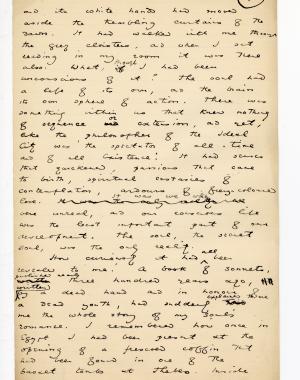 and its white hands had moved
aside the trembling curtains of the
dawn. It had walked with me through
the grey cloisters, and when I sat
reading in my room it was there
also. What, though I had been
unconscious of it? The soul had
a life of its own, and the brain
its own sphere of action. There was
something within us that knew nothing
of sequence or extension, and yet,
like the philosopher of the Ideal
City was the spectator of all time
and of all existence. It had senses
that quickened, passions that came
to birth, spiritual ecstasies of
contemplation, ardours of fiery-coloured
love. It was we who
were unreal, and our conscious life
was the least important part of our
development. The soul, the secret
soul, was the only reality.
How curiously it had all been
revealed to me! A book of sonnets,
published nearly three hundred years ago,
written by a dead hand and in honour of
a dead youth, had suddenly explained to
me the whole story of my soul's
romance. I remembered how once in
Egypt I had been present at the
opening of a frescoed coffin that
had been found in one of the
basalt tombs at Thebes. Inside